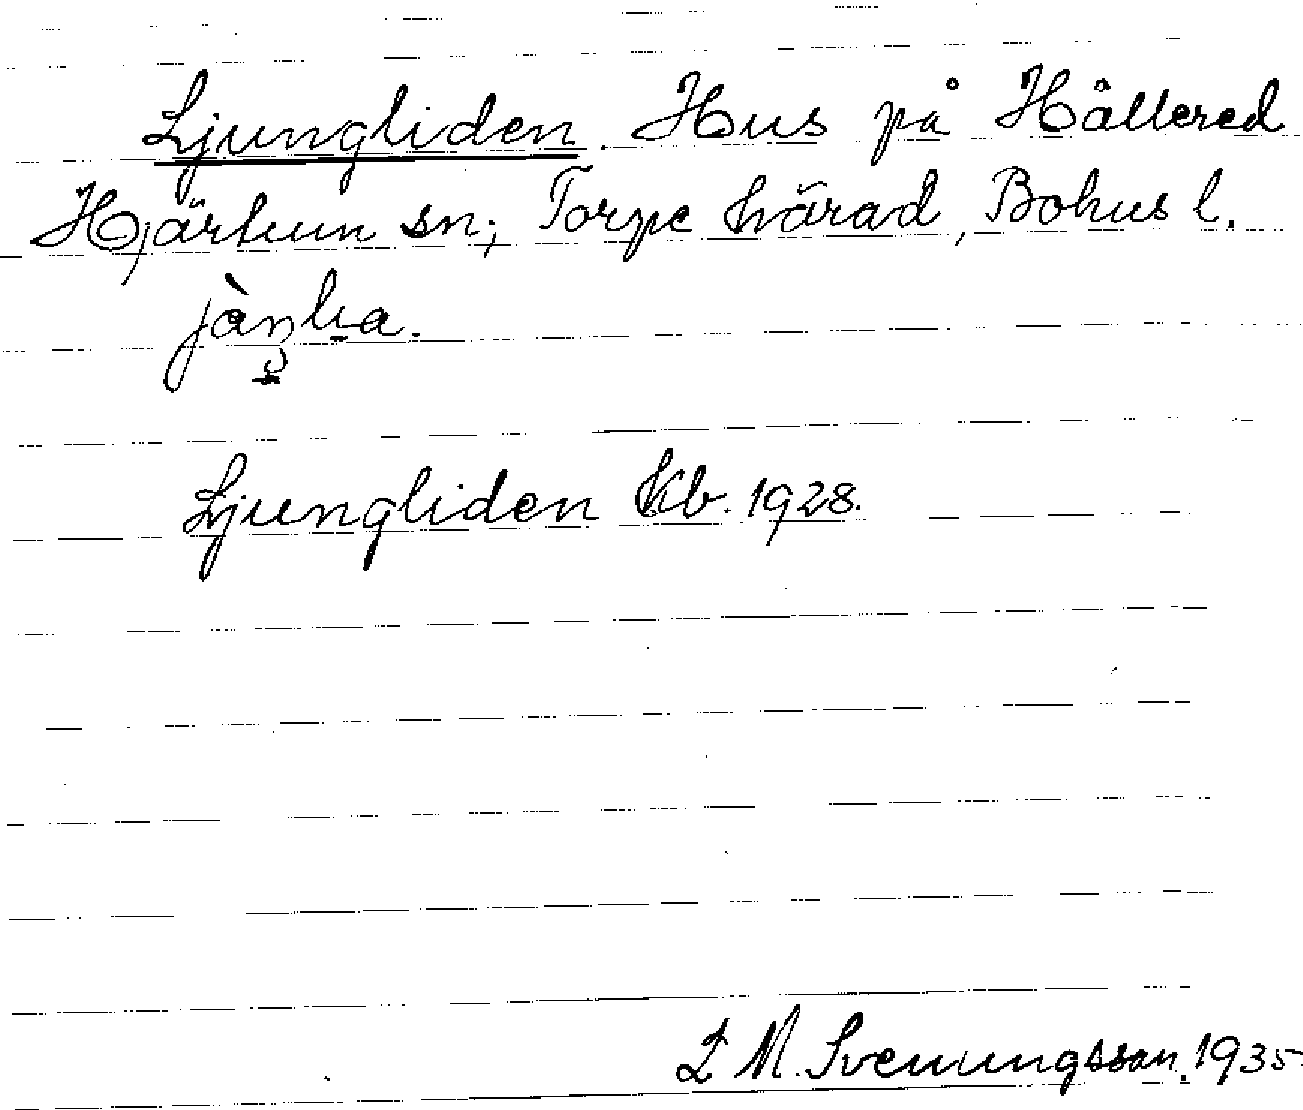 Ljungliden. Hus på Hällered
Hjärtum sn; Torpe härad, Bohus l.
Ljungliden Kb. 1928.
L M. Svenungsson. 1935